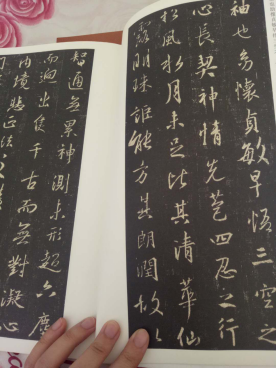 袖也幼懷貞敏早悟三空之
心長契神情先苞四忍之行
松風水月未足比其清華仙
露明珠詎能方其朗潤故以
智通無累神測未形超六塵
而迥出隻千古而無對凝心
內境悲正法之